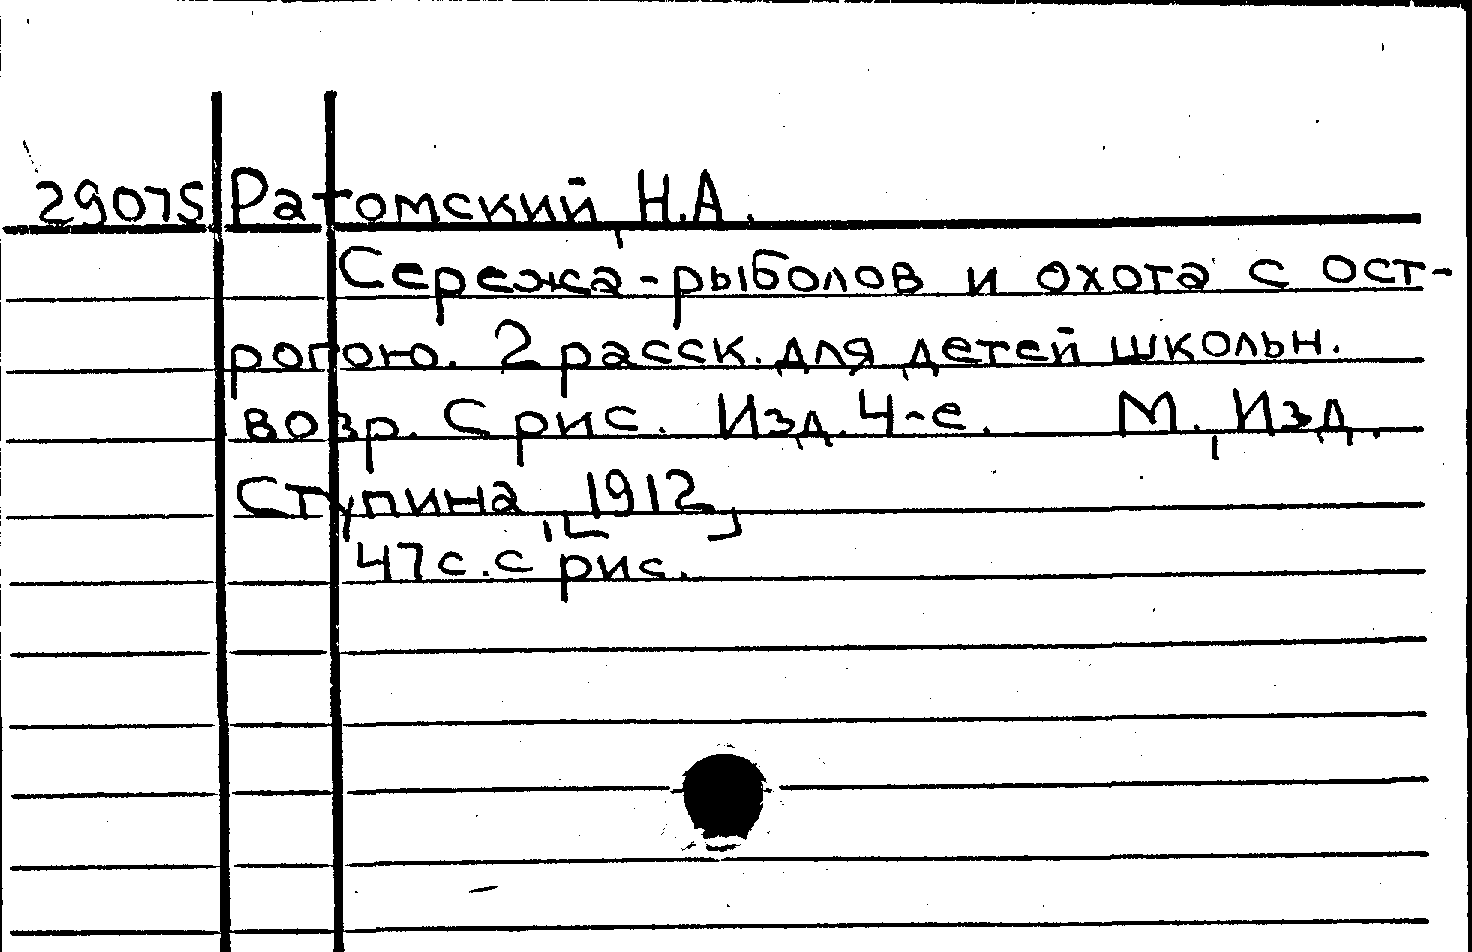 29075 Ратомский, Н.А.
Сережа-рыболов и охота с ост-
рогою. 2 расск. для детей школьн.
возр. С рис. Изд. 4-е. М., Изд.
Ступина, [1912]
47 с. с рис.